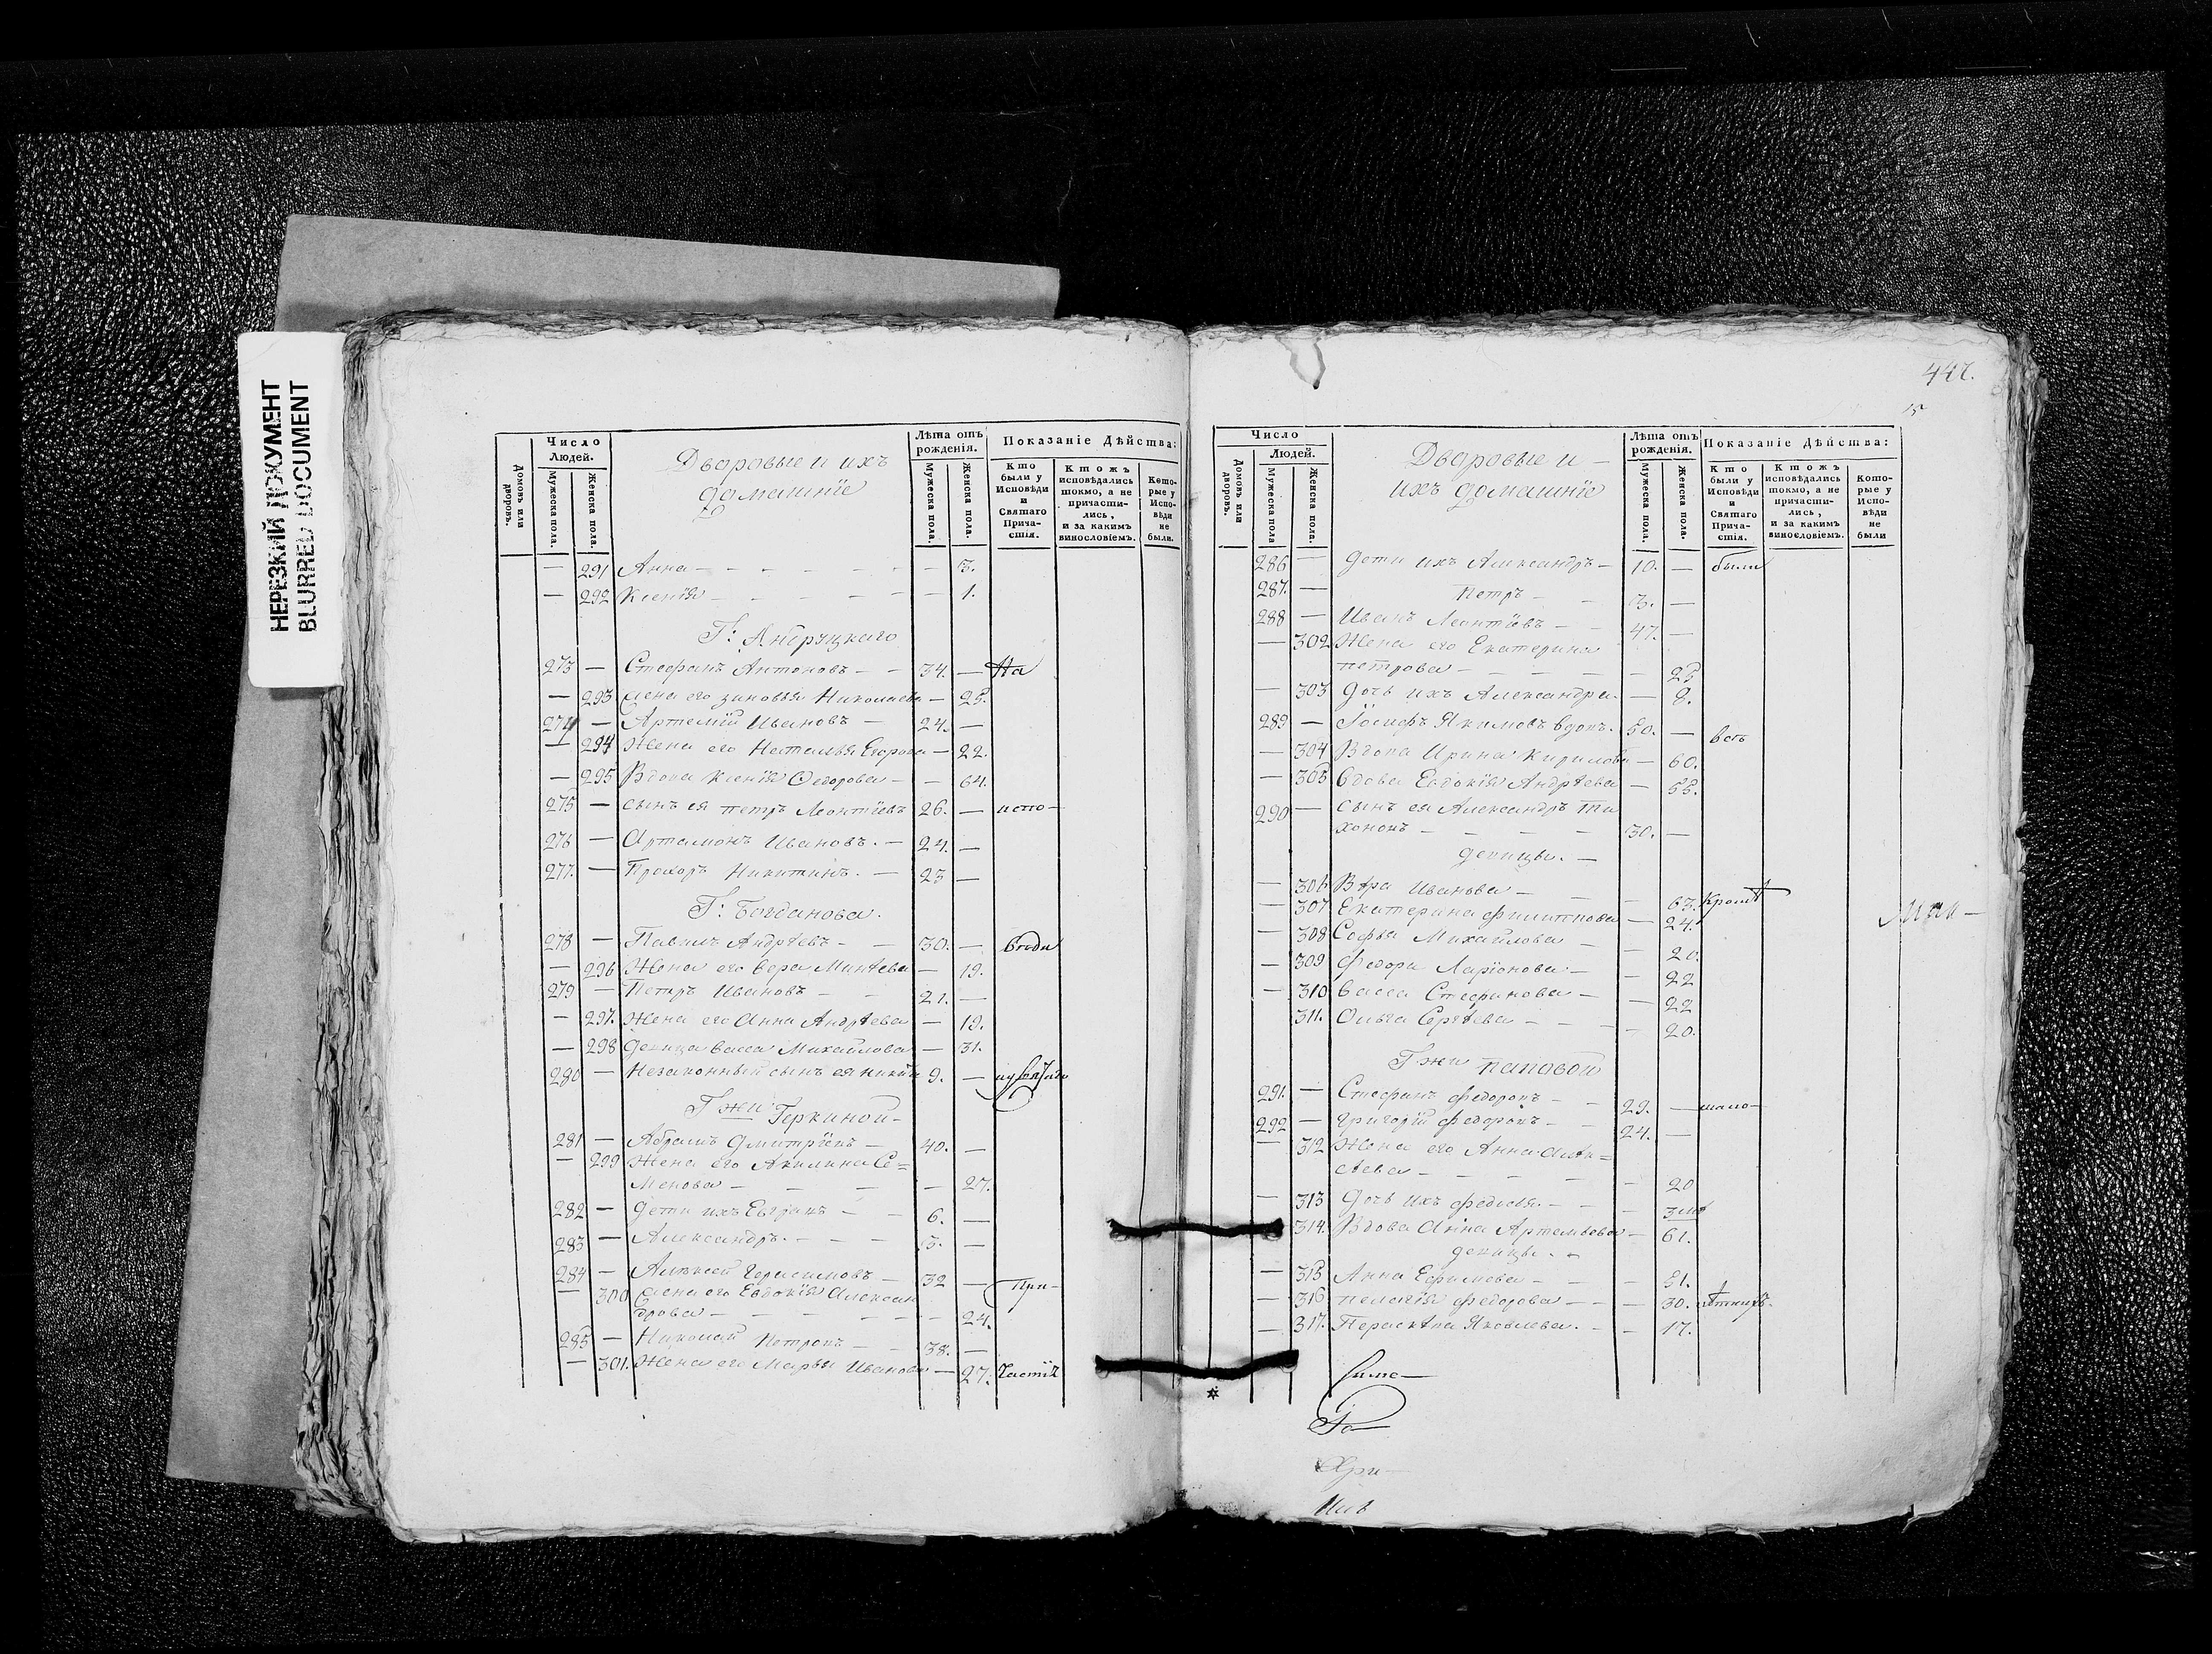 НЕРЕЗКИЙ ДОКУМЕНТ
BLURRED DOCUMENT
Число Людей.
Лѣта отъ рожденія.
Показаніе Дѣйства:
Домовъ или дворовъ.
Мужеска пола.
Женска пола.
Дворовые и ихъ
домашніе
Мужеска пола.
Женска пола.
Кто были у Исповѣди и Святаго Причастія.
Ктожъ исповѣдались токмо, а не причастились, и за какимъ винословіемъ.
Которые у Исповѣди не были.
— 291 Анна — — 3.
— 292 Ксенія — — 1.
Г: Андруцкаго
273 — Стефанъ Антоновъ — 34. — На
— 293 жена его Зиновья Николаева — 25.
274 — Артемій Ивановъ — 24. —
— 294 Жена его Наталья Егорова — 22.
— 295 Вдова Ксенія Федорова — — 64.
275 — сынъ ея петръ Леонтіевъ 26. — испо—
276 — Артамонъ Ивановъ. — 24. —
277. — Прохоръ Никитинъ. — 23 —
Г: Богданова.
278 — Павелъ Андрѣевъ — 30. —
— 296 Жена его Вера Минѣева — 19.
279 — Петръ Ивановъ — 21. —
— 297. Жена его Анна Андрѣева — 19.
— 298 девица васса Михайлова — 31.
280 — Незаконный сынъ ея 9. —
Гжи Геркиной
281 — Абрамъ Дмитріевъ — 40. —
— 299 Жена его Акилина Се=
менова — — 27.
282 — дети ихъ Евграфъ — 6. —
283 — Александръ. — 5. —
284 — Алексей Герасимовъ — 32 — При—
— 300 жена его Евдокія Алексан
дрова — — 24.
285 — Николай Петровъ — 38. —
— 301. Жена его Марья Иванова — 27. Частіи
447.
15
Число Людей.
Лѣта отъ рожденія.
Показаніе Дѣйства:
Домовъ или дворовъ.
Мужеска пола
Женска пола.
Дворовые и —
ихъ домашніе
Мужеска пола.
Женска пола.
Кто были у Исповѣди и Святаго Причастія.
Ктожъ исповѣдались токмо, а не причастились, и за какимъ винословіемъ.
Которые у Исповѣди не были
286 — дети ихъ Александръ — 10. — были
287. — Петръ — 3. —
288 — Иванъ Леонтіевъ — 47. —
— 302 Жена его Екатерина
петрова — — 25
— 303 дочь ихъ Александра. — 8.
289 — Іосифъ Якимовъ вдовъ. 50. — всѣ
— 304 Вдова Ирина Кирилова — 60.
— 305 вдова Евдокія Андрѣева — 55.
290 — сынъ ея Александръ Ти
хоновъ — 30. —
девицы. —
— 306 Вѣра Иванова — — 63. кромѣ
— 307 Екатерина Филиппова — 24.
— 308 Софья Михайлова — 20.
— 309 Федора Ларіонова — — 22
— 310 васса Стефанова — — 22
311. Ольга Сергѣева — — 20.
Гжи Паповой
291. — Стефанъ Федоровъ — 29. — мало—
292 — григорій федоровъ — 24. —
— 312 Жена его Анна Алѣк=
сѣева — — 20
— 313 дочь ихъ Федосья. — — 3
314. Вдова Анна Артемьева — 61.
девицы. —
— 315 Анна Ефимова — — 51.
— 316 пелагія федорова — — 30. лѣтнихъ.
— 317. Параскѣва Яковлева. — — 17.